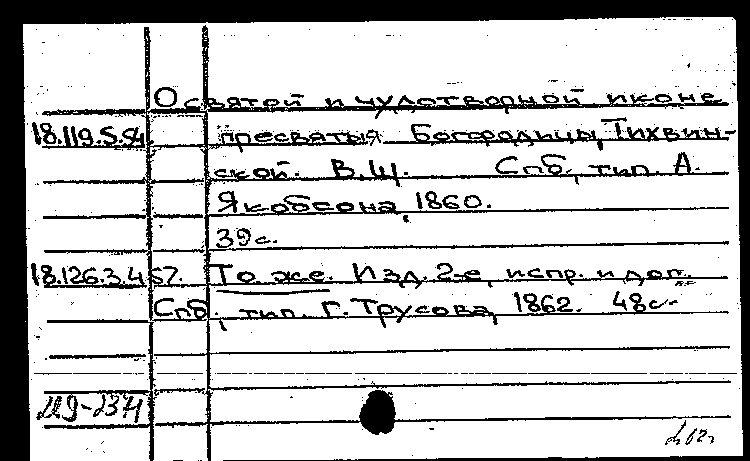 О святой и чудотворной иконе
18.119.5.54 пресвятыя Богородицы, Тихвин-
ской. В.Щ. Спб, тип. А.
Якобсона, 1860.
39 с.
18.126.3.457. То же. Изд. 2-е, испр. и доп.
Спб, тип. Г. Трусова, 1862. 48 с.